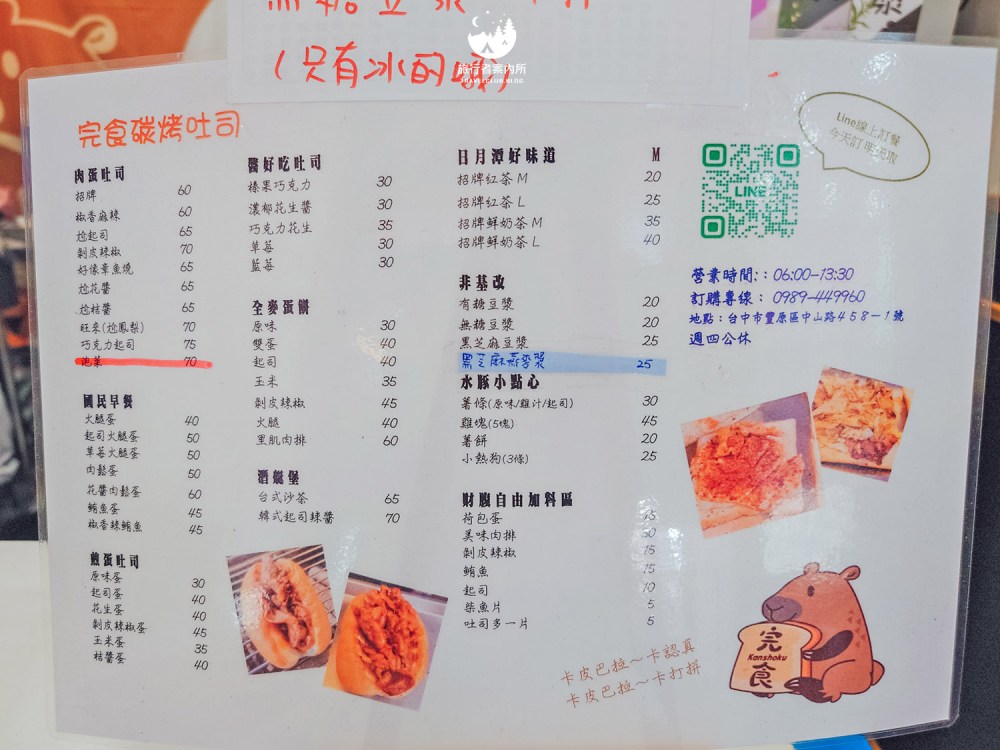 (只有冰的哦)
旅行者案內所
完食碳烤吐司
肉蛋吐司
招牌 60
椒香麻辣 60
尬起司 65
剝皮辣椒 70
好像章魚燒 65
尬花醬 65
尬桔醬 65
旺來(尬鳳梨) 70
巧克力起司 75
泡菜 70
國民早餐
火腿蛋 40
起司火腿蛋 50
草莓火腿蛋 50
肉鬆蛋 50
花醬肉鬆蛋 60
鮪魚蛋 45
椒香辣鮪魚 45
煎蛋吐司
原味蛋 30
起司蛋 40
花生蛋 40
剝皮辣椒蛋 45
玉米蛋 35
桔醬蛋 40
醬好吃吐司
榛果巧克力 30
濃郁花生醬 30
巧克力花生 35
草莓 30
藍莓 30
全麥蛋餅
原味 30
雙蛋 40
起司 40
玉米 35
剝皮辣椒 45
火腿 40
里肌肉排 60
潛艇堡
台式沙茶 65
韓式起司辣醬 70
日月潭好味道 M
招牌紅茶M 20
招牌紅茶L 25
招牌鮮奶茶M 35
招牌鮮奶茶L 40
非基改
有糖豆漿 20
無糖豆漿 20
黑芝麻豆漿 25
黑芝麻燕麥漿 25
水豚小點心
薯條(原味/雞汁/起司) 30
雞塊(5塊) 45
薯餅 20
小熱狗(3條) 25
財腹自由加料區
荷包蛋 15
美味肉排 30
剝皮辣椒 15
鮪魚 15
起司 10
柴魚片 5
吐司多一片 5
Line線上訂餐
今天訂 明天取
LINE
營業時間:：06:00-13:30
訂購專線：0989-449960
地點：台中市豐原區中山路458-1號
週四公休
卡皮巴拉～卡認真
卡皮巴拉～卡打拼
完
Kanshoku
食